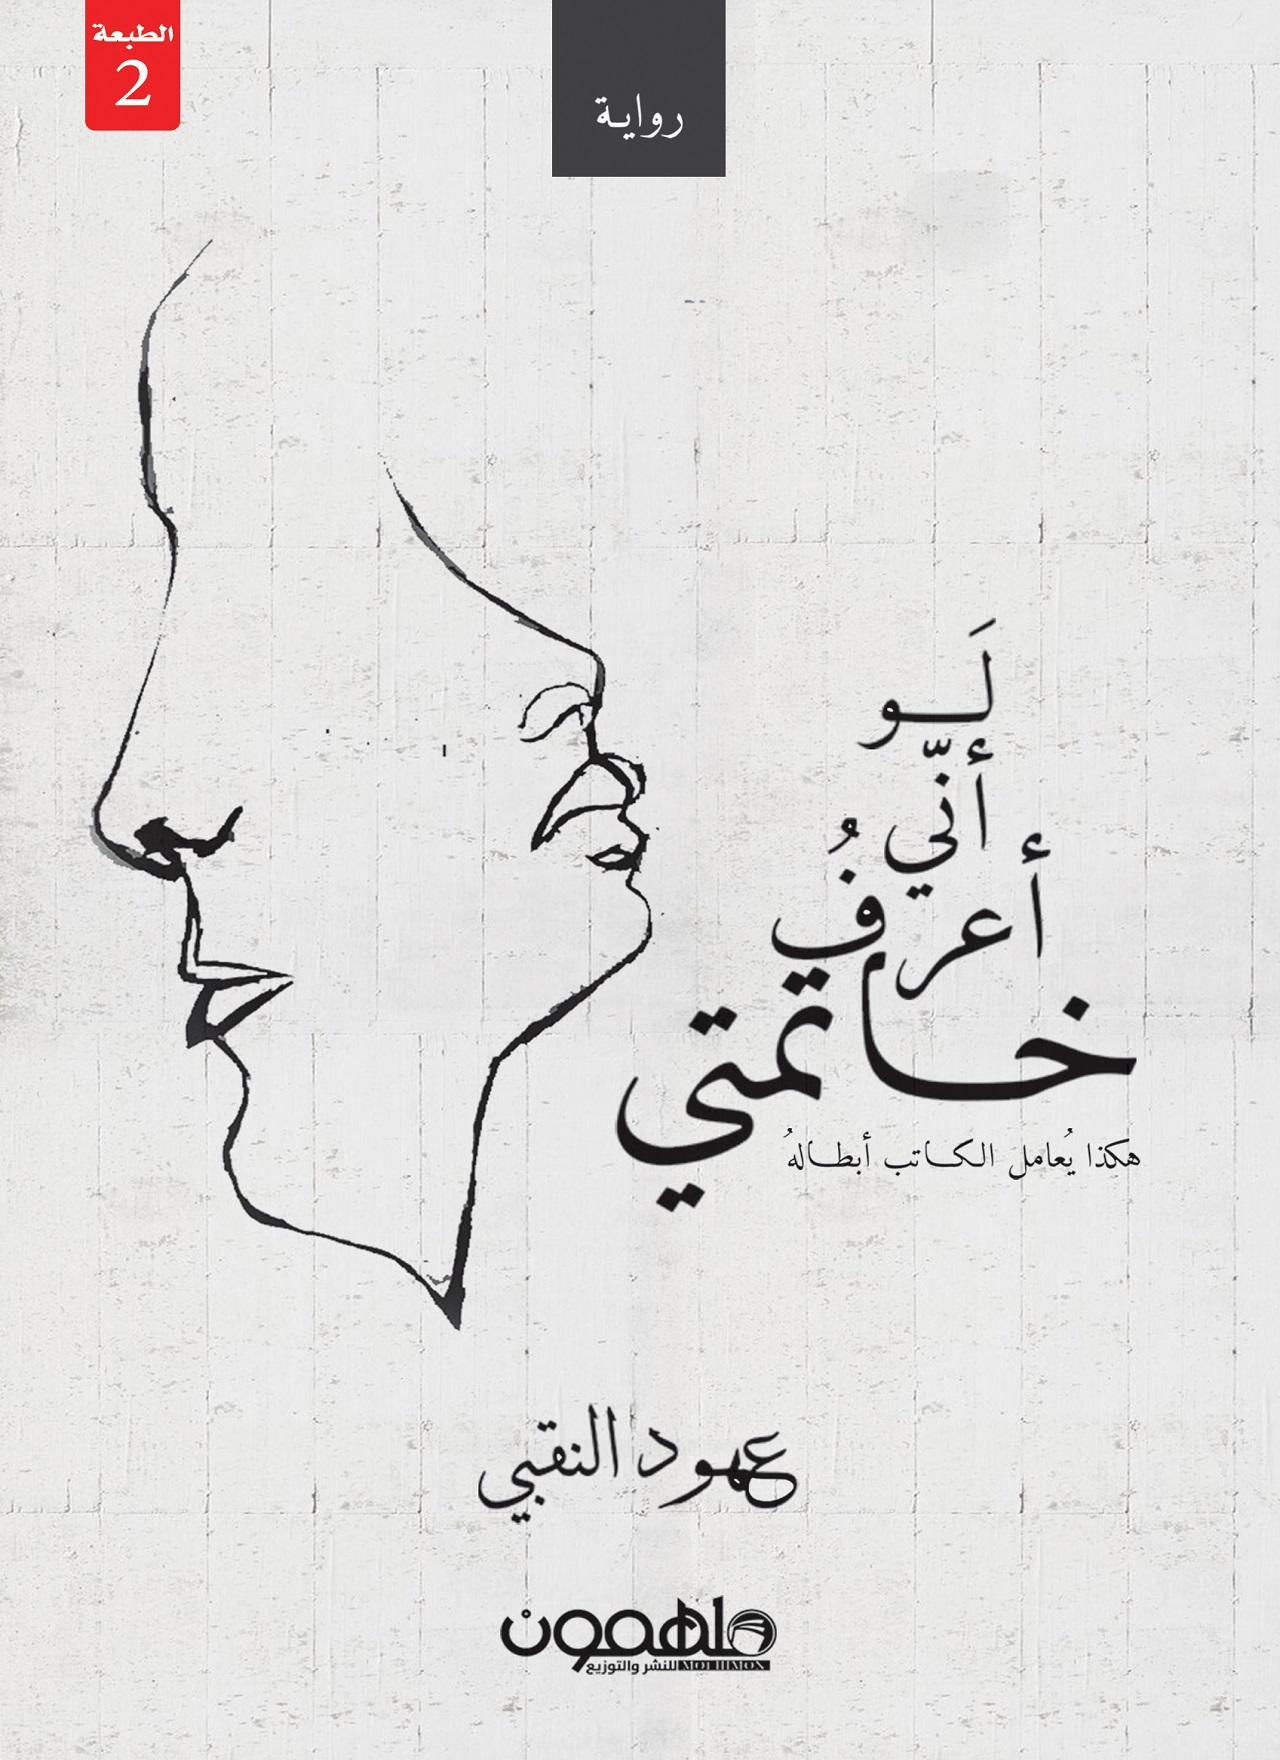 الطبعة
2
رواية
لَو
أنّي
أعرفُ
خاتمتي
هكذا يُعامل الكاتب أبطالهُ
عهود النقبي
ملهمون
MOLHIMON للنشر والتوزيع